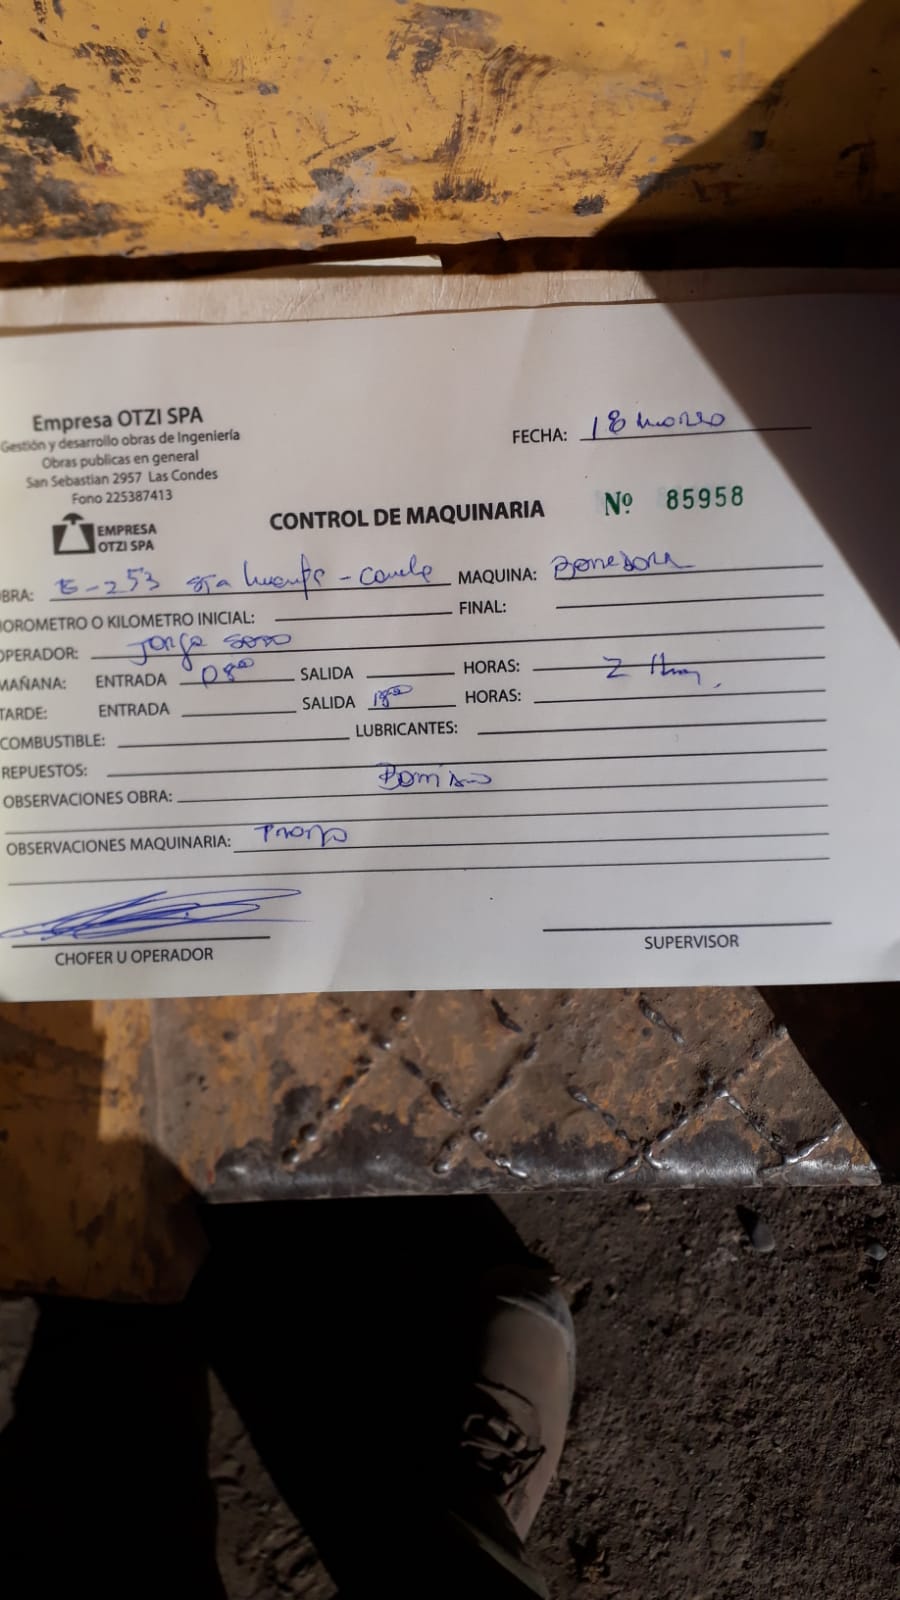 Empresa OTZI SPA
Gestión y desarrollo obras de Ingeniería
Obras publicas en general
San Sebastian 2957 Las Condes
Fono 225387413
EMPRESA
OTZI SPA
FECHA: 18 marzo
CONTROL DE MAQUINARIA Nº 85958
BRA: E-253 MAQUINA:
OROMETRO O KILOMETRO INICIAL: FINAL:
OPERADOR: Jorge Soto
MAÑANA: ENTRADA 08⁰⁰ SALIDA HORAS: 2
TARDE: ENTRADA SALIDA 18⁰⁰ HORAS:
COMBUSTIBLE: LUBRICANTES:
REPUESTOS:
OBSERVACIONES OBRA:
OBSERVACIONES MAQUINARIA:
CHOFER U OPERADOR SUPERVISOR